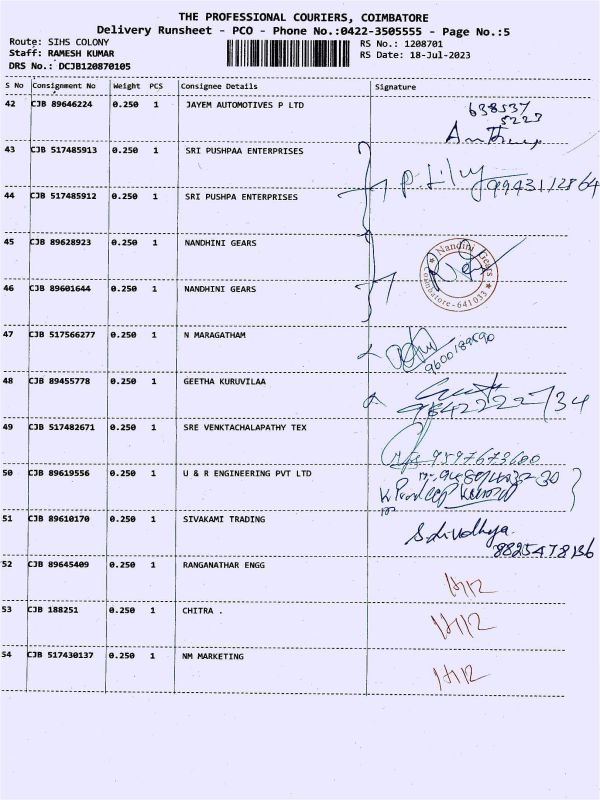 THE PROFESSIONAL COURIERS, COIMBATORE
Delivery Runsheet - PCO - Phone No.:0422-3505555 - Page No.:5
Route: SIHS COLONY
RS No.: 1208701
Staff: RAMESH KUMAR
RS Date: 18-Jul-2023
DRS No.: DCJB120870105
S No Consignment No Weight PCS Consignee Details Signature
42 CJB 89646224 0.250 1 JAYEM AUTOMOTIVES P LTD
43 CJB 517485913 0.250 1 SRI PUSHPAA ENTERPRISES
P. Lily 9943112864
44 CJB 517485912 0.250 1 SRI PUSHPA ENTERPRISES
45 CJB 89628923 0.250 1 NANDHINI GEARS
Nandini Gears
Coimbatore-641033
46 CJB 89601644 0.250 1 NANDHINI GEARS
47 CJB 517566277 0.250 1 N MARAGATHAM
48 CJB 89455778 0.250 1 GEETHA KURUVILAA
49 CJB 517482671 0.250 1 SRE VENKTACHALAPATHY TEX
50 CJB 89619556 0.250 1 U & R ENGINEERING PVT LTD
51 CJB 89610170 0.250 1 SIVAKAMI TRADING
8825478136
52 CJB 89645409 0.250 1 RANGANATHAR ENGG
53 CJB 188251 0.250 1 CHITRA .
54 CJB 517430137 0.250 1 NM MARKETING